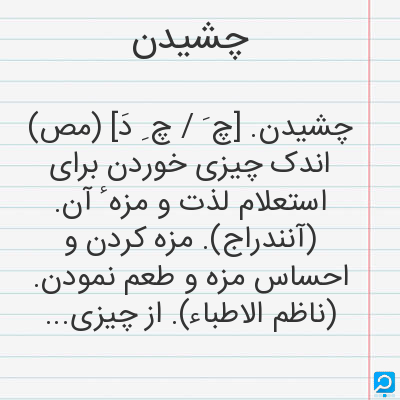 چشیدن
چشیدن. [چ َ / چ ِ دَ] (مص)
اندک چیزی خوردن برای
استعلام لذت و مزه ٔ آن.
(آنندراج). مزه کردن و
احساس مزه و طعم نمودن.
(ناظم الاطباء). از چیزی...